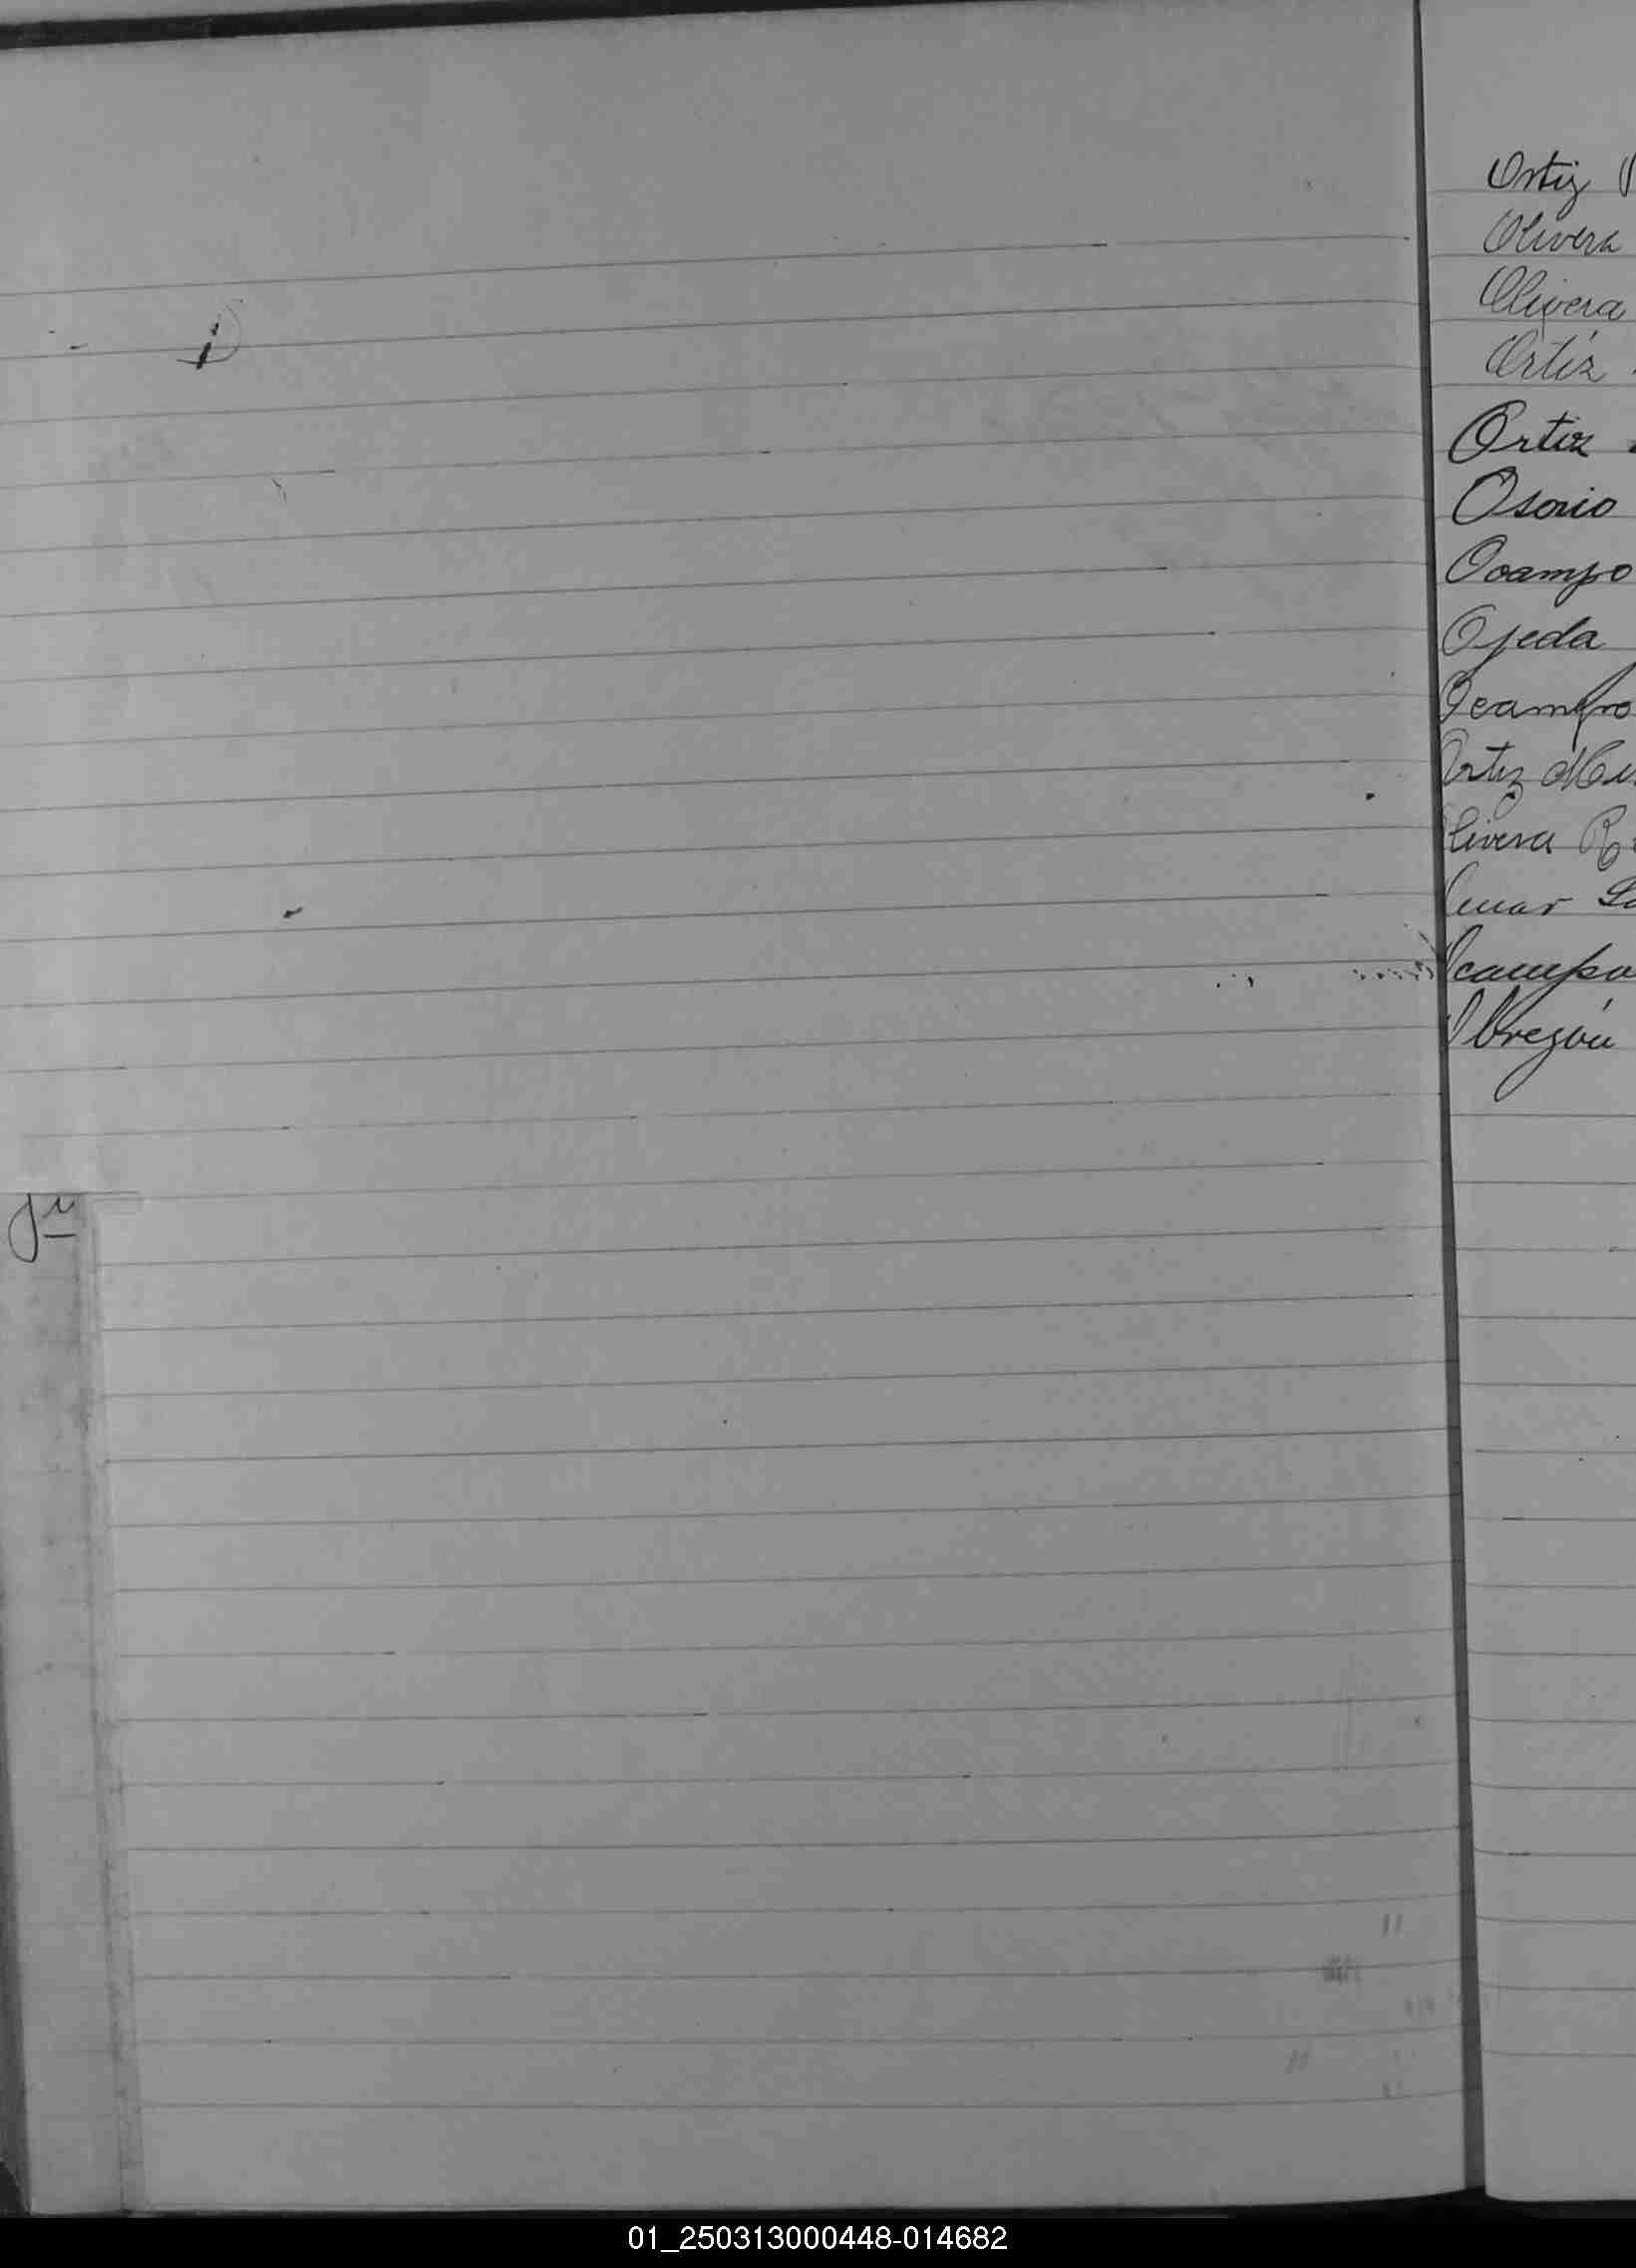 Ortiz
Olivera
Olivera
Ortíz
Ortiz
Osorio
Ocampo
Ojeda
Ocampo
Ortiz
livera R
Omar
Ocampo
Obregón
01_250313000448-014682